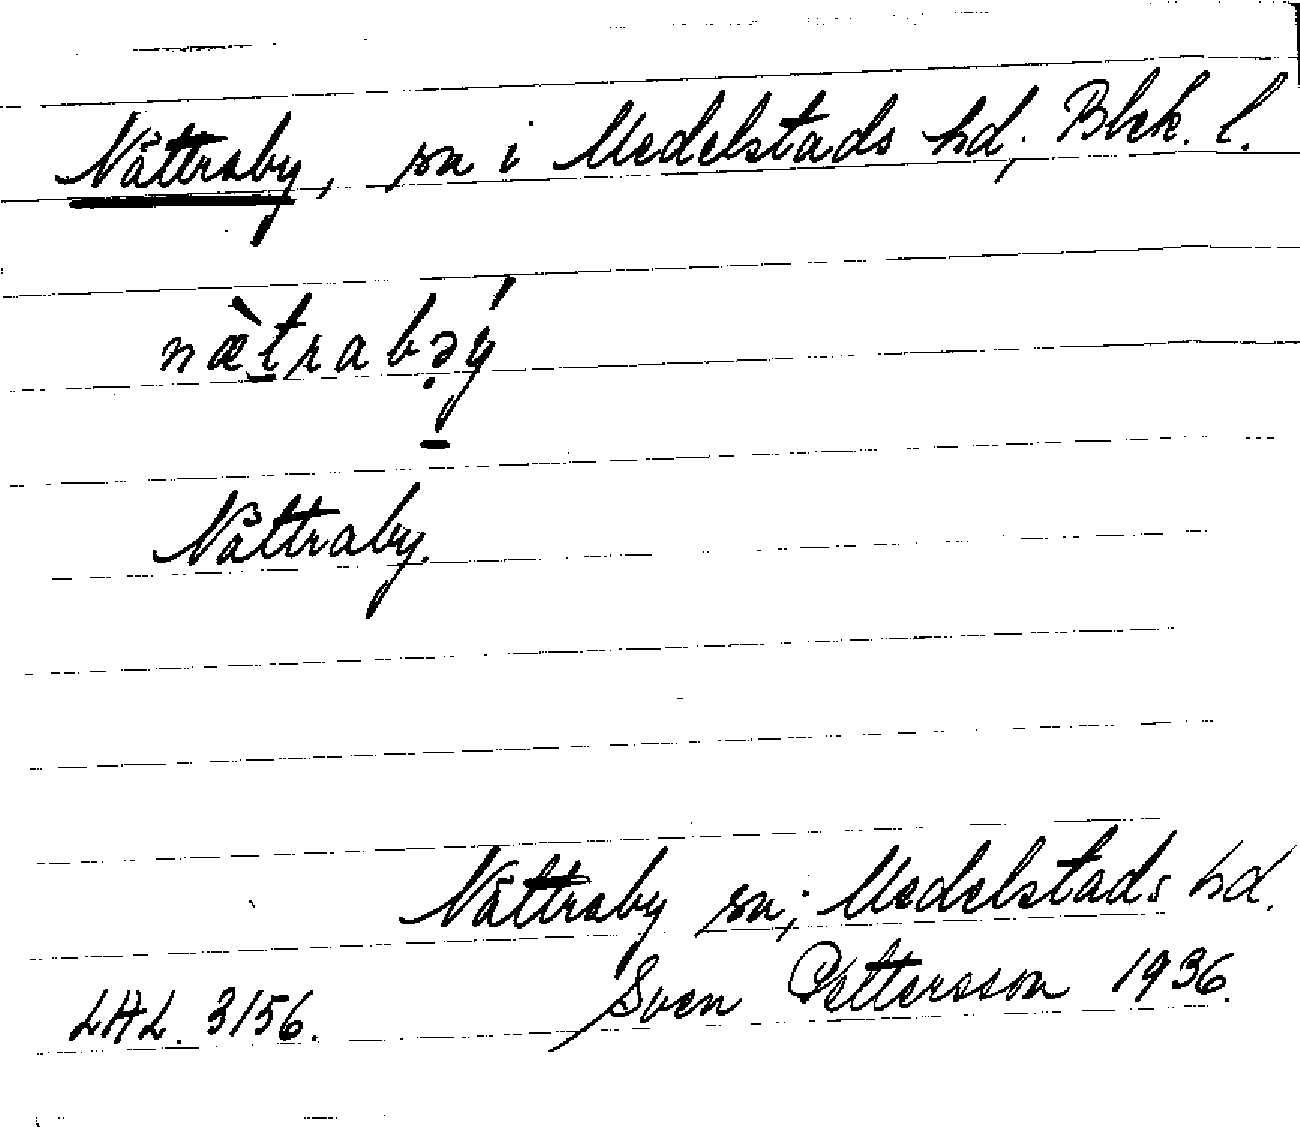 Nättraby, sn i Medelstads hd, Blek. l.
næ̀t̠rabə̣ý
Nättraby.
Nättraby sn; Medelstads hd.
LAL. 3156. Sven Pettersson 1936.